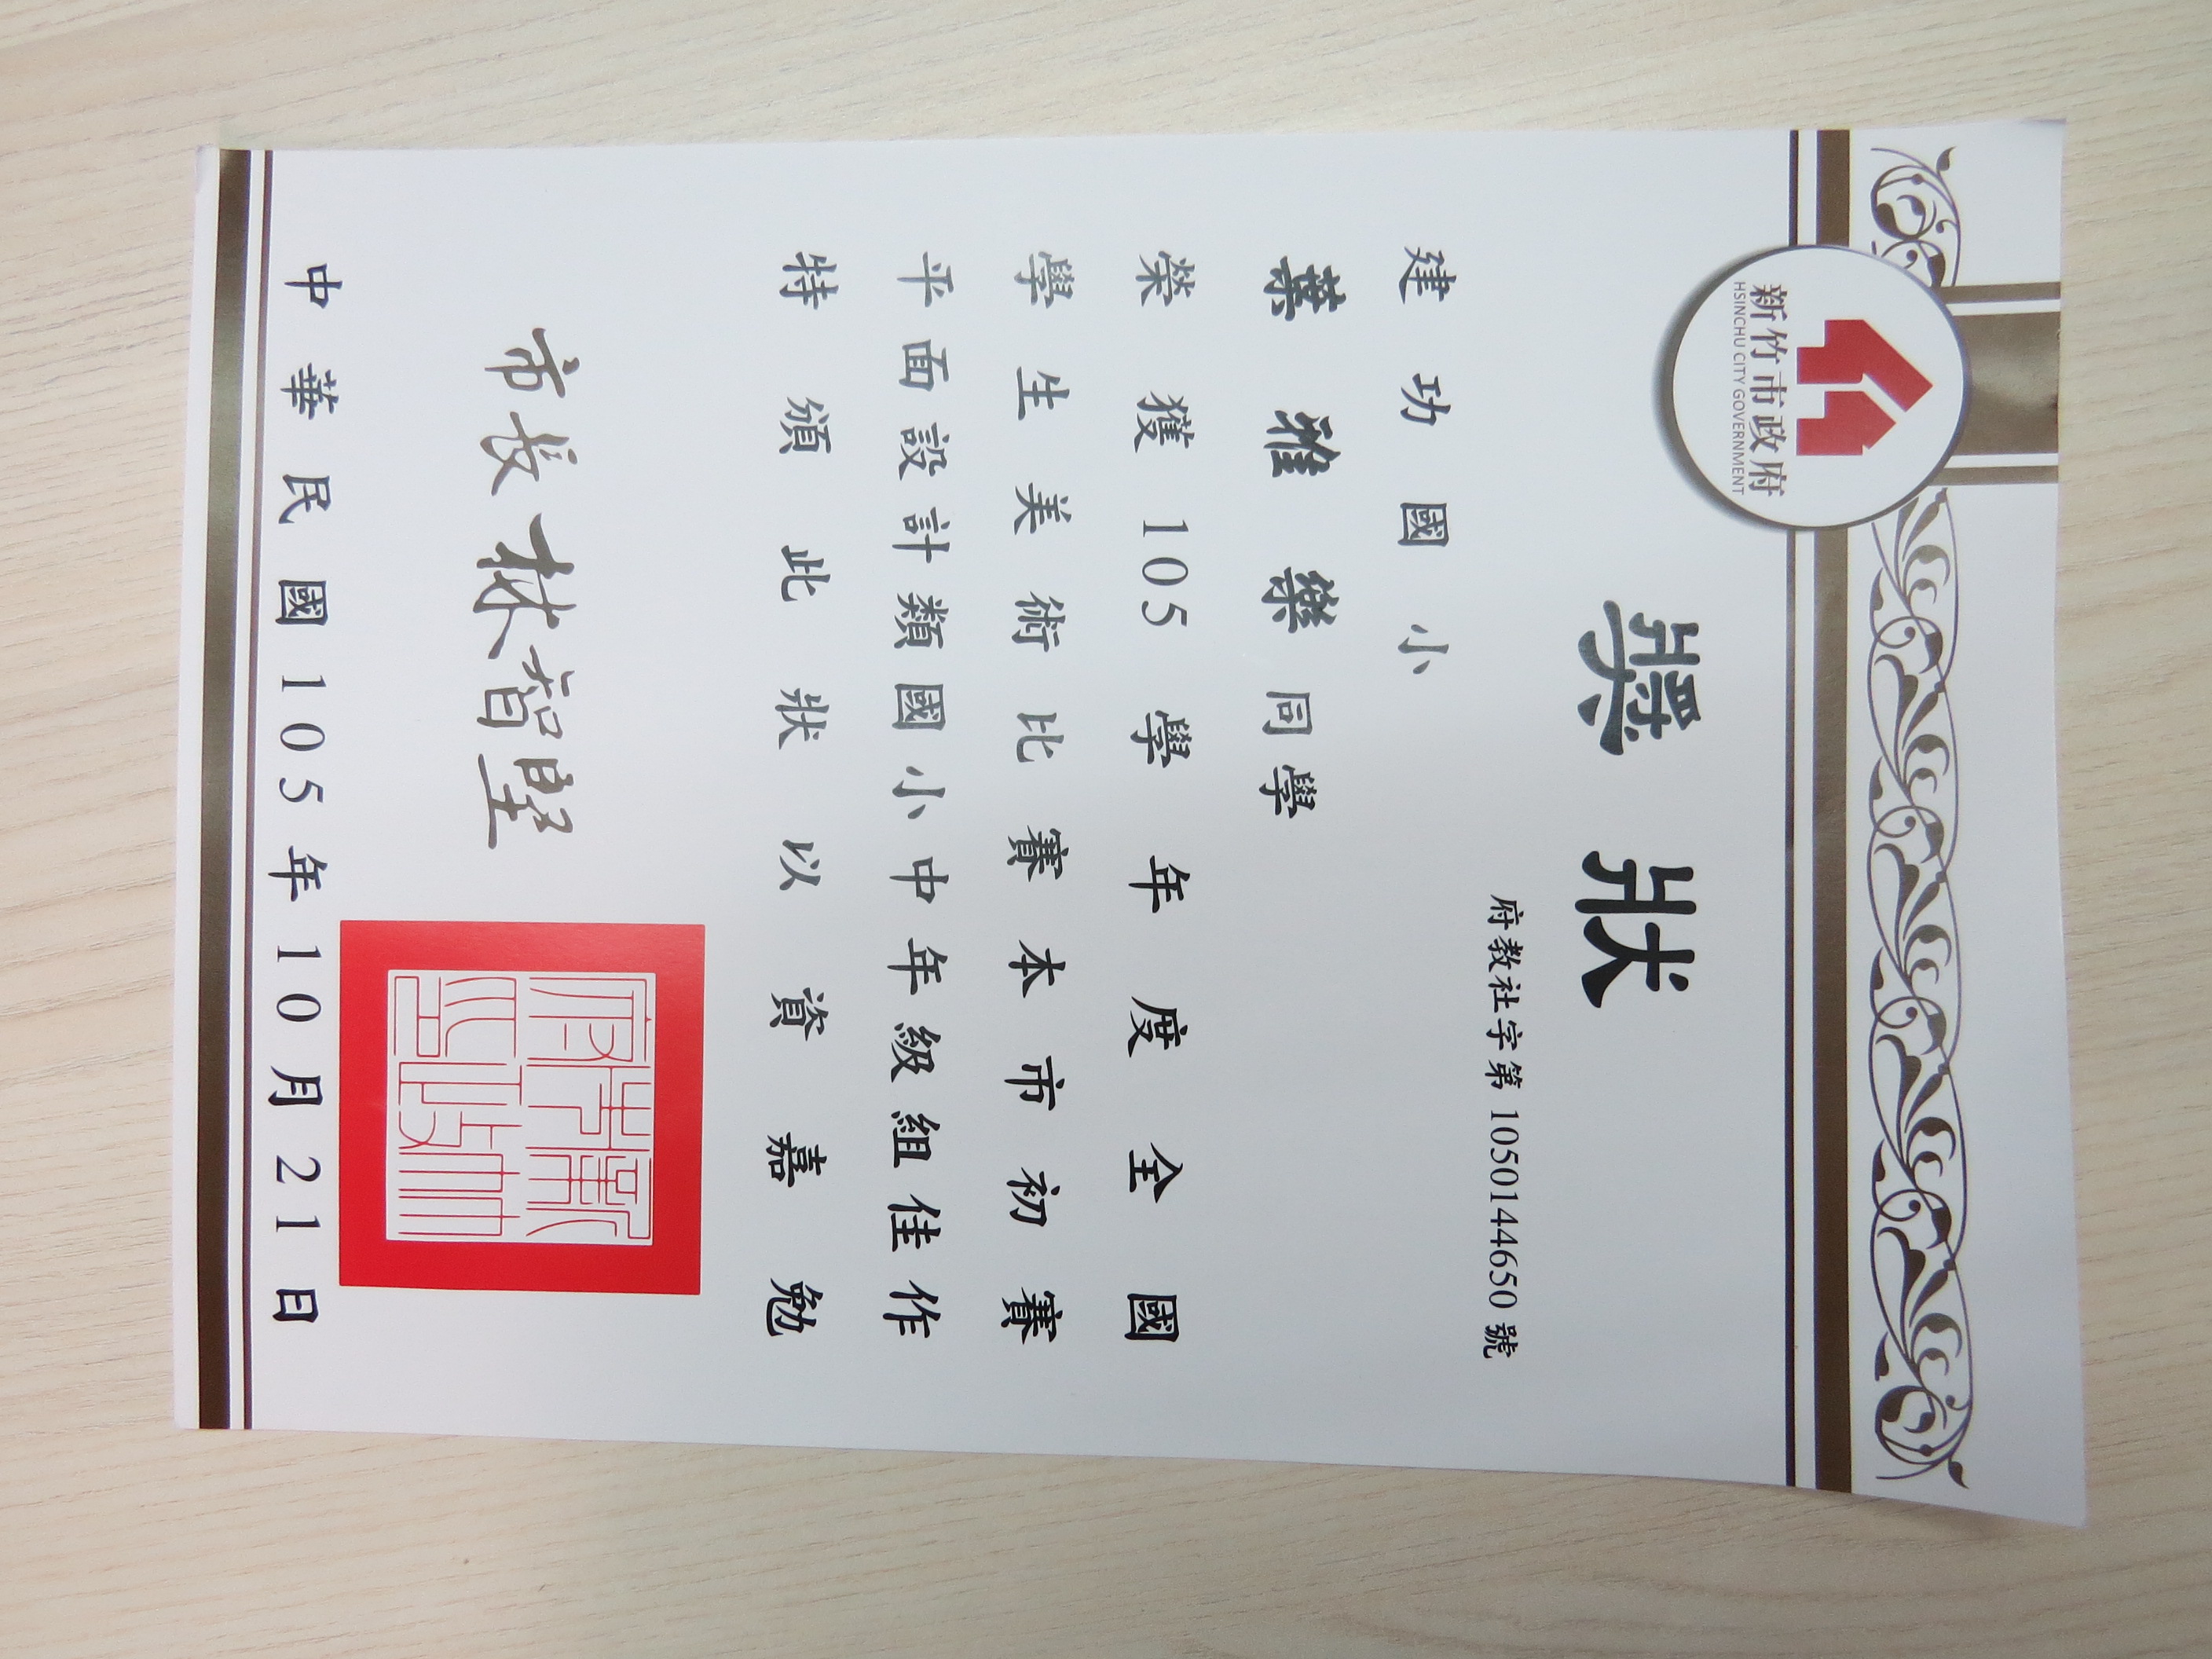 新竹市政府
HSINCHU CITY GOVERNMENT
獎狀
府教社字第 1050144650 號
建功國小
葉雅樂同學
榮獲105學年度全國
學生美術比賽本市初賽
平面設計類國小中年級組佳作
特頒此狀以資嘉勉
市長林智堅
中華民國105年10月21日